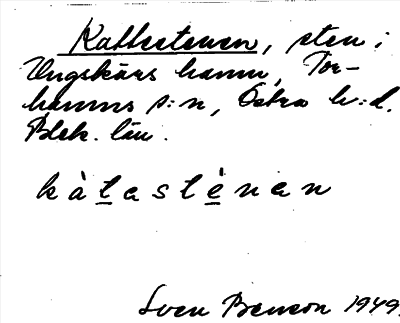 Kattestenen, sten i
Ungskärs hamn, Tor-
hamns s:n, Östra h:d.
Blek. län.
kàtastènan
Sven Benson 1949.